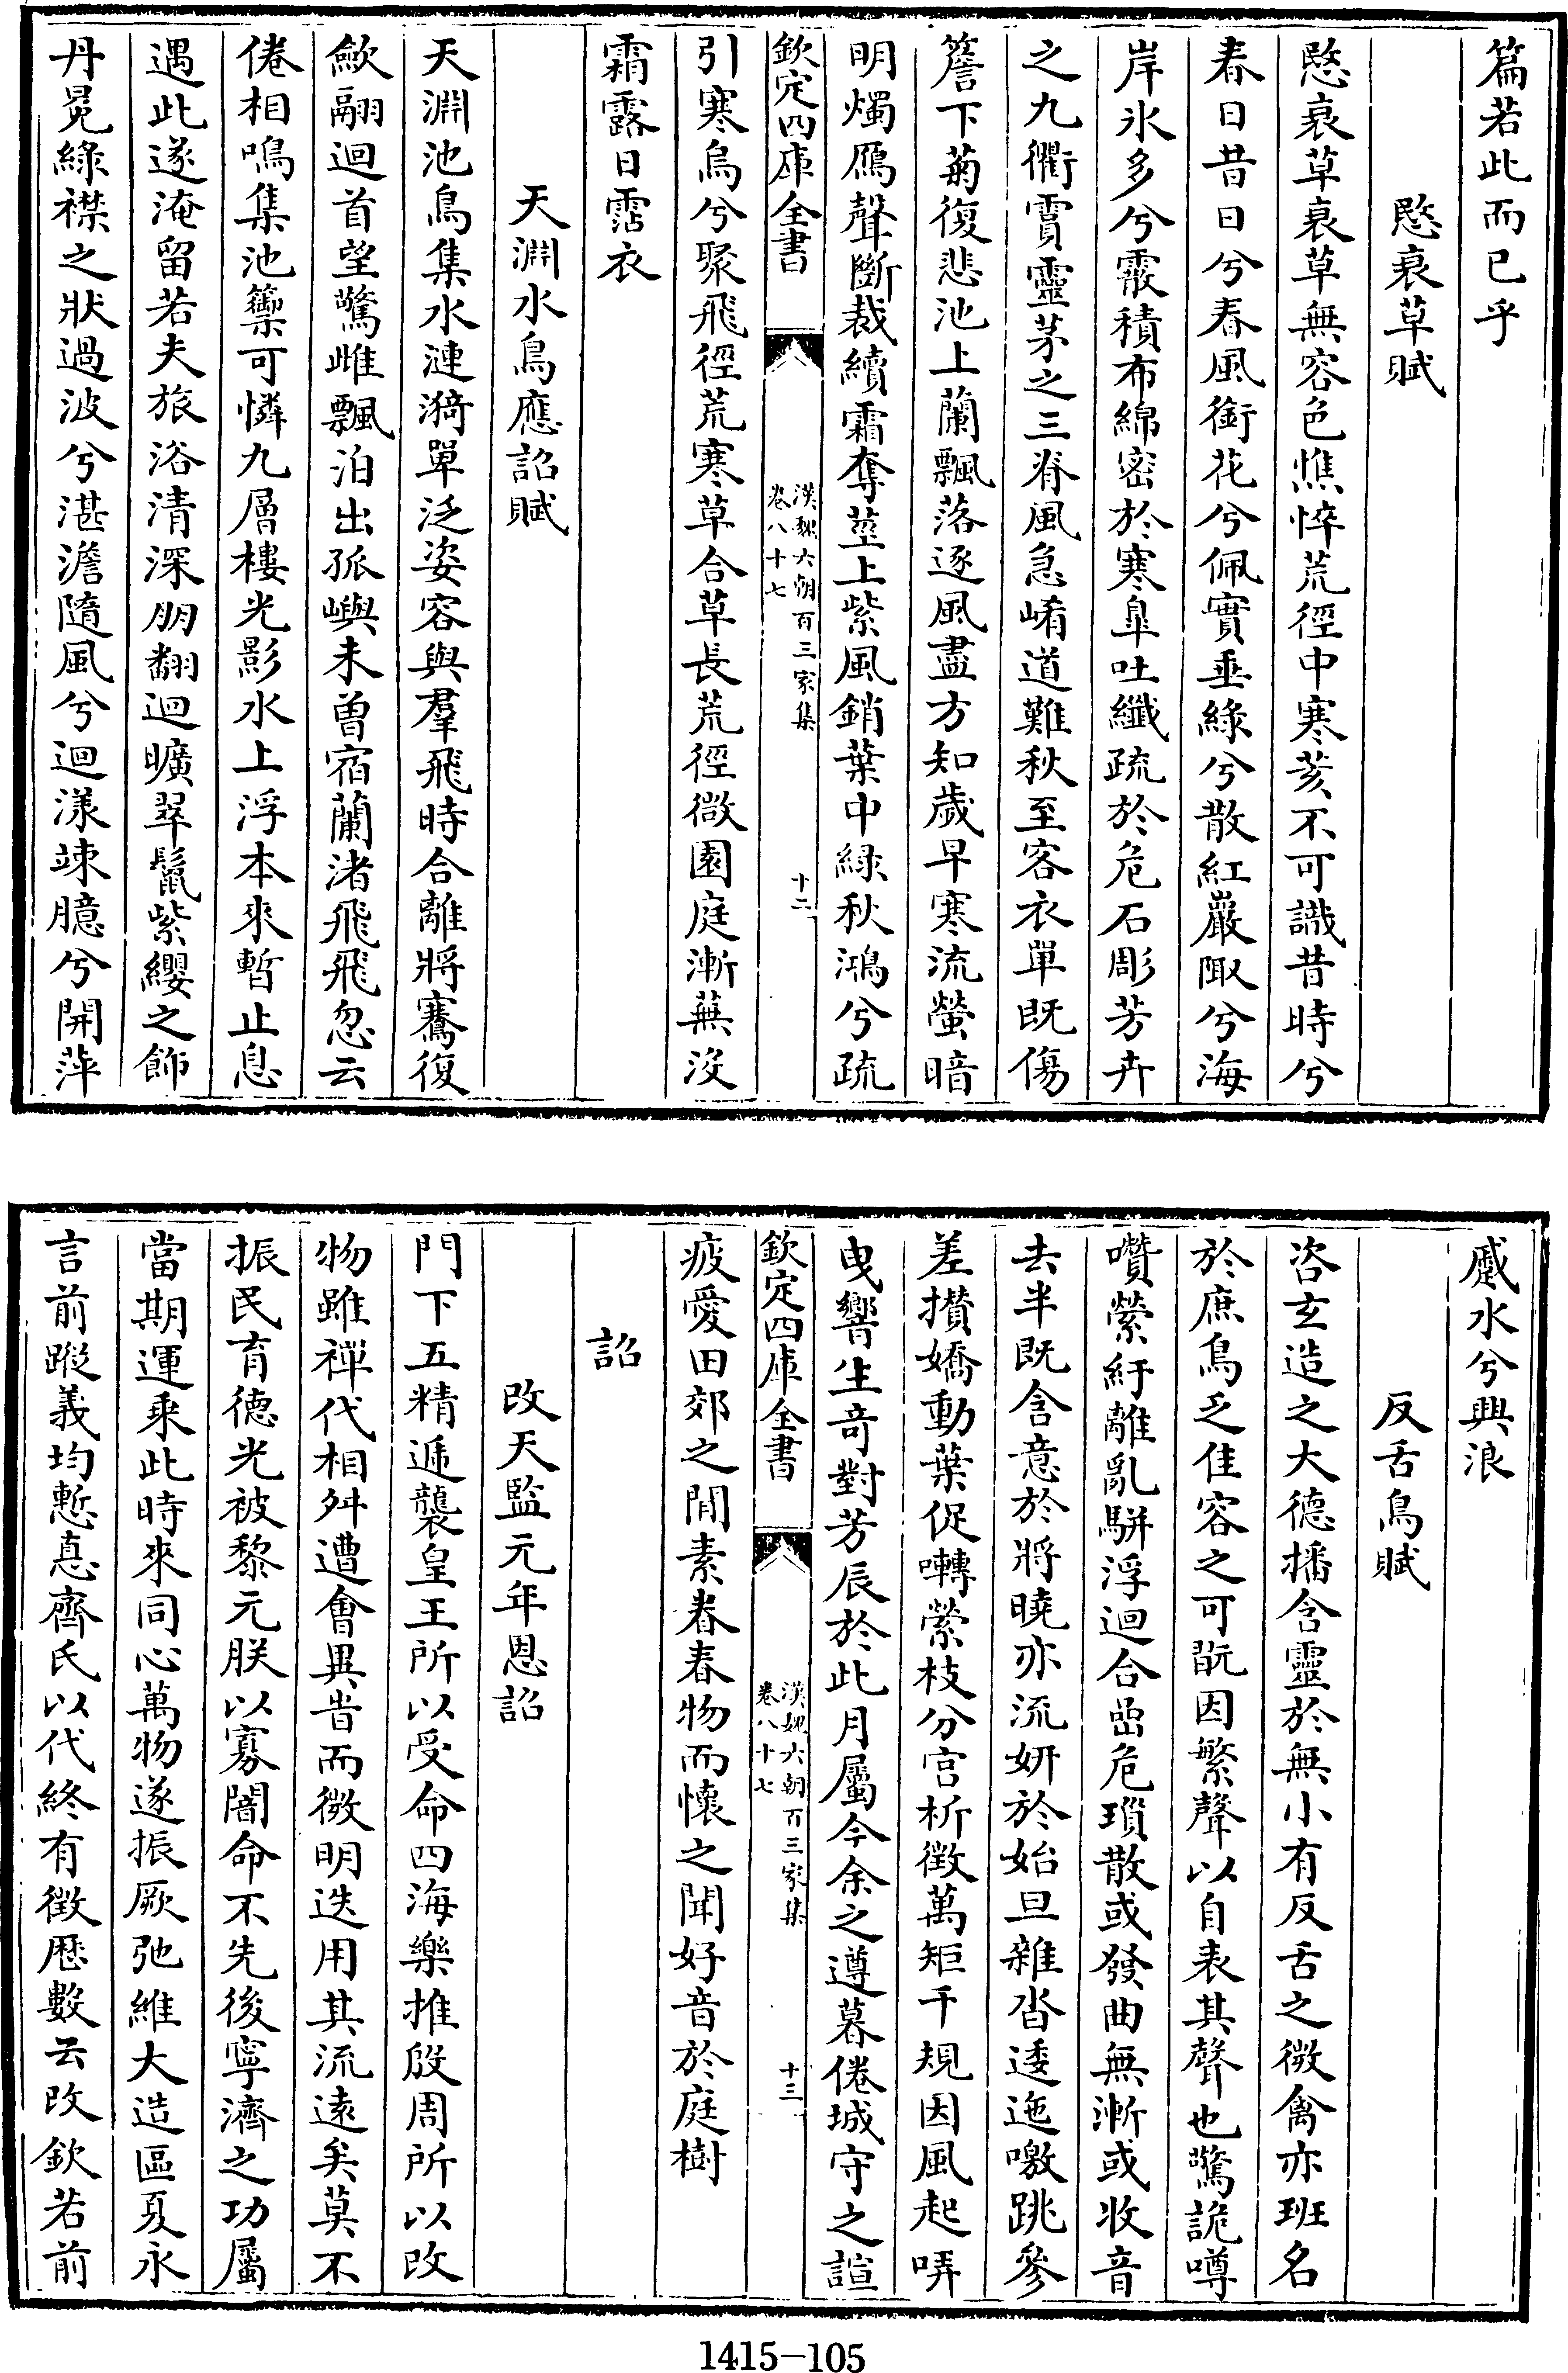 篇若此而已乎
愍衰草賦
愍衰草衰草無容色憔悴荒徑中寒荄不可識昔時兮
春日昔日兮春風銜花兮佩實垂綠兮散紅巖陬兮海
岸氷多兮霰積布綿密於寒臯吐纖疏於危石彫芳卉
之九衢實靈茅之三脊風急崤道難秋至客衣單既傷
簷下菊復悲池上蘭飄落逐風盡方知歲早寒流螢暗
明燭鴈聲斷裁續霜奪莖上紫風銷葉中綠秋鴻兮疏
欽定四庫全書
漢魏六朝百三家集
卷八十七
十二
引寒烏兮聚飛徑荒寒草合草長荒徑微園庭漸蕪没
霜露日霑衣
天淵水鳥應詔賦
天淵池鳥集水漣漪單泛姿容與羣飛時合離將騫復
歛翮迴首望驚雌飄泊出孤嶼未曽宿蘭渚飛飛忽云
倦相鳴集池籞可憐九層樓光影水上浮本來暫止息
遇此遂淹留若夫旅浴清深朋翻迴曠翠鬛紫纓之飾
丹冕綠襟之狀過波兮湛澹隨風兮迴漾竦臆兮開萍
蹙水兮興浪
反舌鳥賦
咨玄造之大德播含靈於無小有反舌之微禽亦班名
於庶鳥乏佳容之可翫因繁聲以自表其聲也驚詭噂
囋縈紆離亂駢浮迴合嵒危瑣散或發曲無漸或收音
去半既含意於將曉亦流妍於始旦雜沓逶迤噭跳參
差攅嬌動葉促囀縈枝分宮析徴萬矩千規因風起哢
曳響生奇對芳辰於此月屬今余之遵暮倦城守之諠
欽定四庫全書
漢魏六朝百三家集
卷八十七
十三
疲愛田郊之閒素眷春物而懷之聞好音於庭樹
詔
改天監元年恩詔
門下五精遞襲皇王所以受命四海樂推殷周所以改
物雖禪代相舛遭會異旹而微明迭用其流遠矣莫不
振民育德光被黎元朕以寡闇命不先後寧濟之功屬
當期運乘此時來同心萬物遂振厥弛維大造區夏永
言前蹤義均慙惪齊氏以代終有徴厯數云改欽若前
1415-105